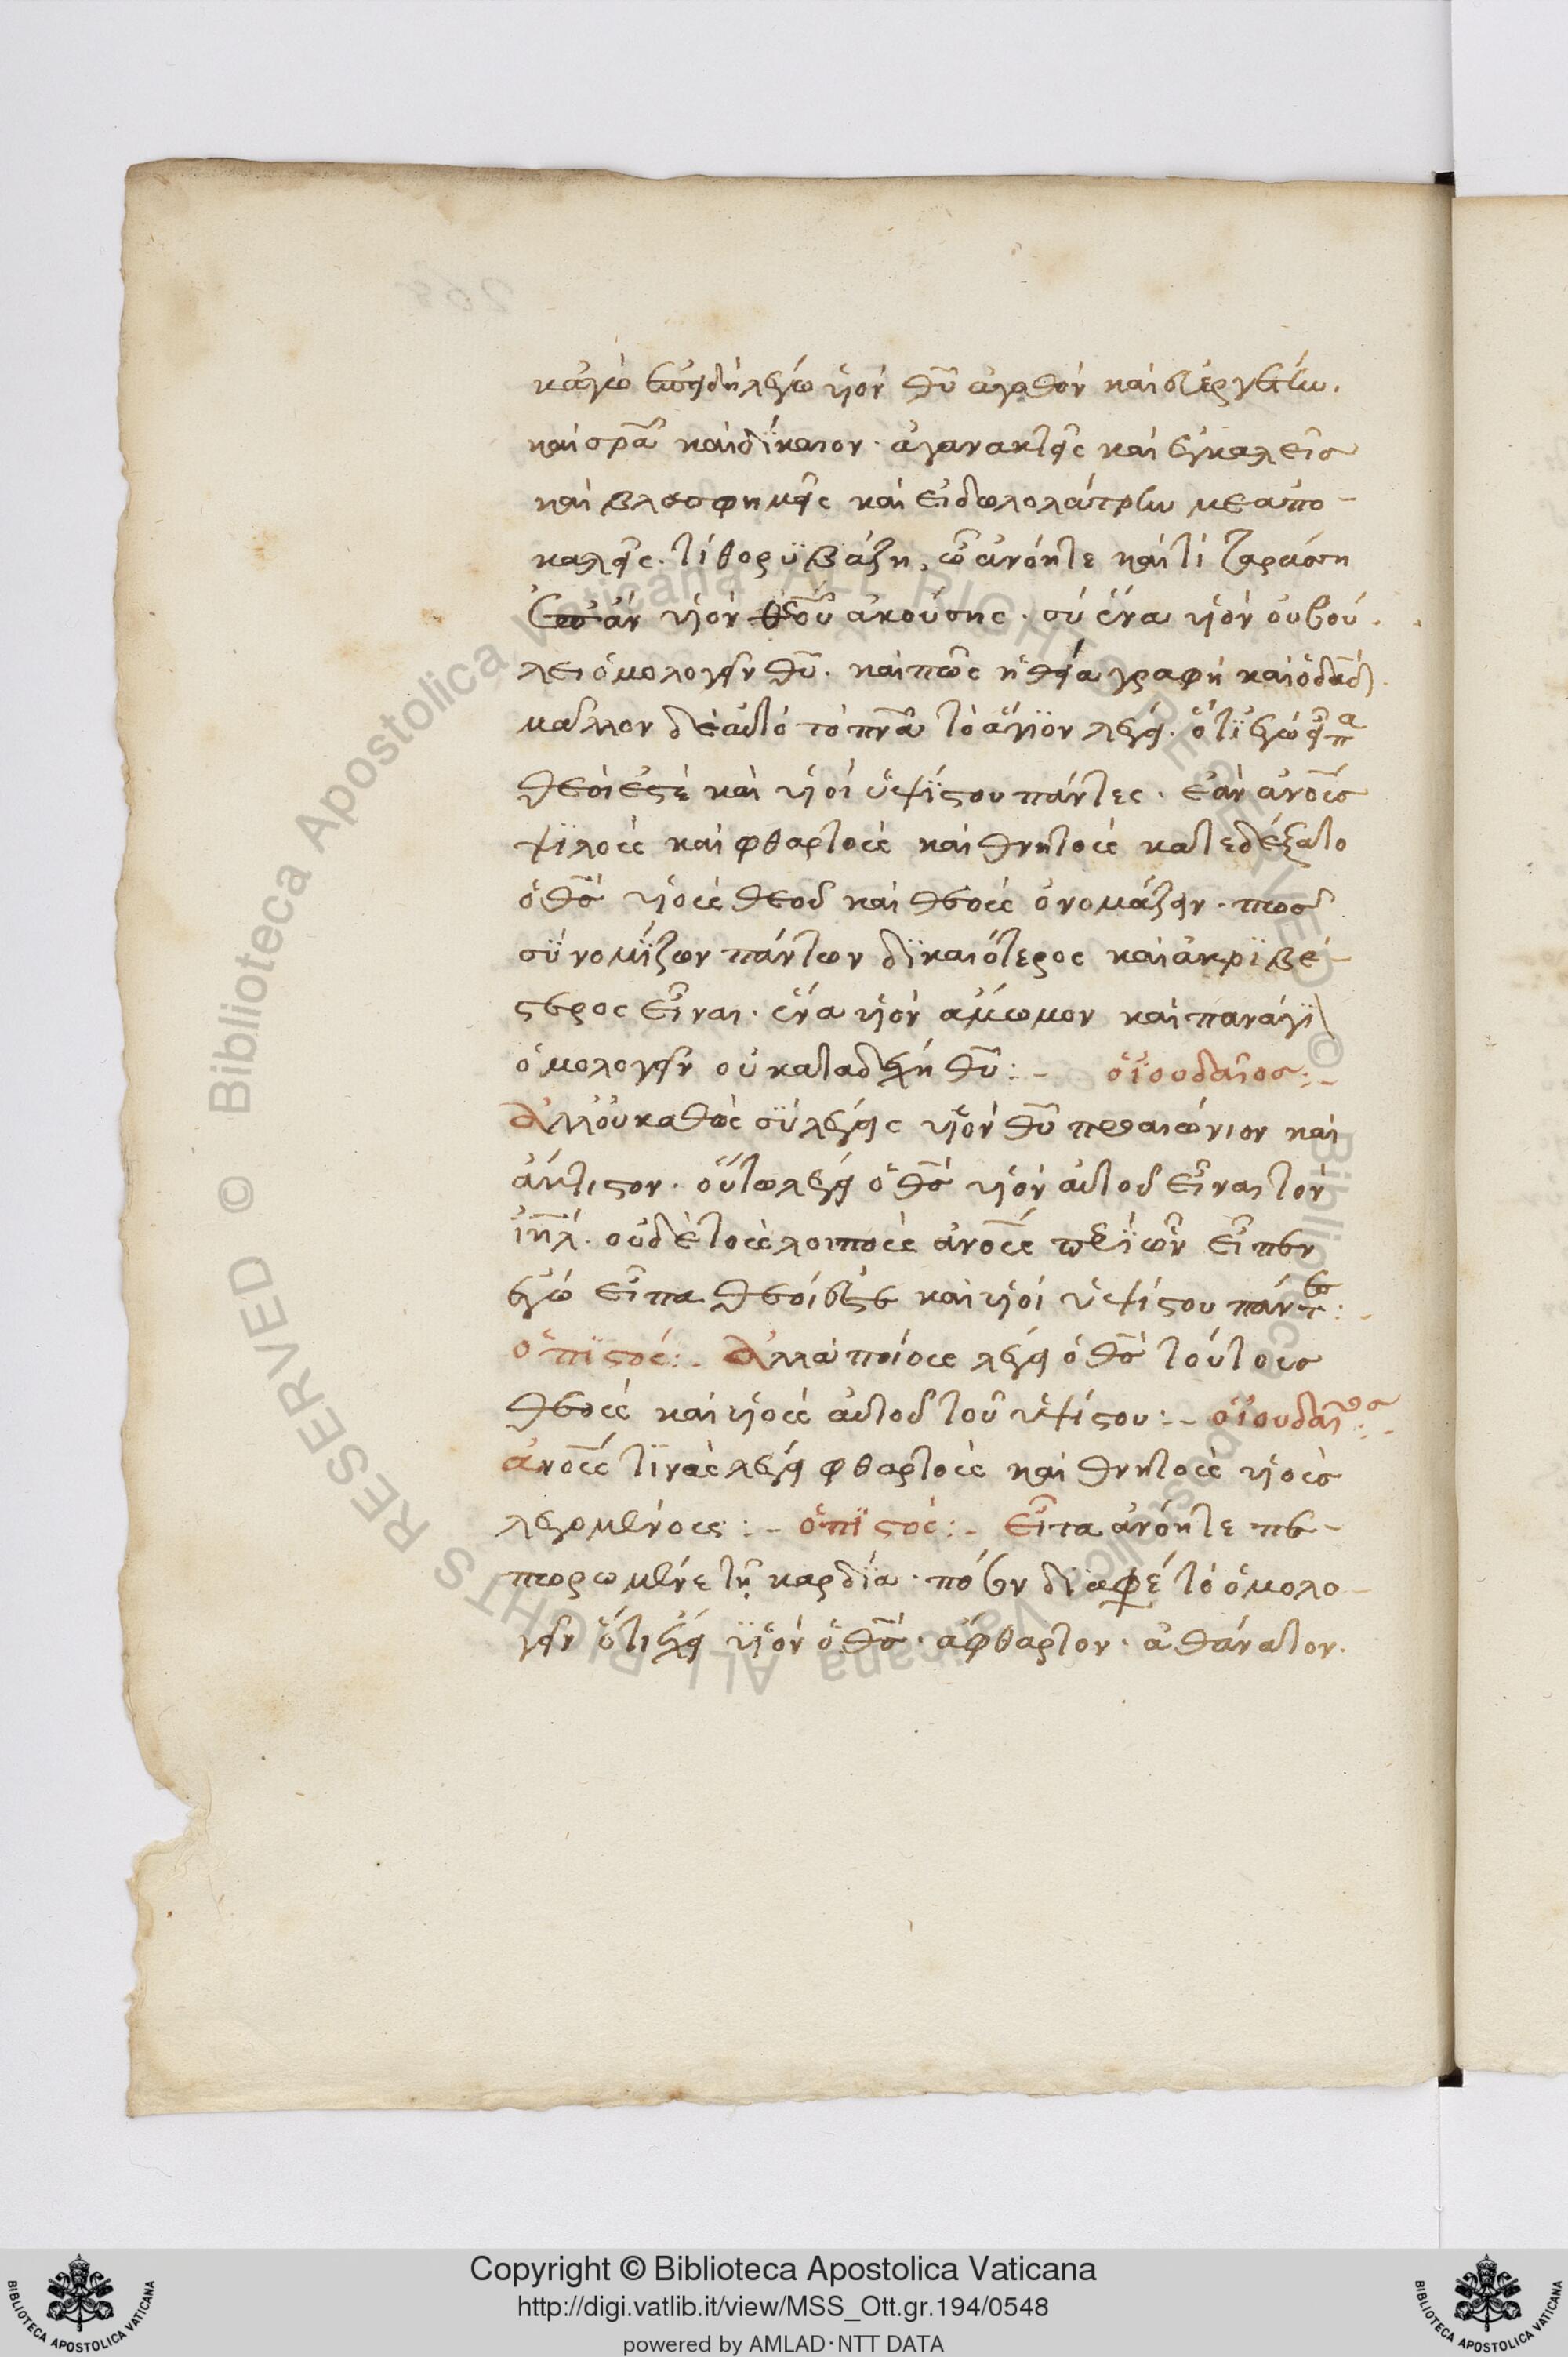 κἀγὼ ἐπειδὴ λέγω υἱὸν θ͞υ ἀγαθὸν καὶ εὐεργέτην.
καὶ σ͞ρα καὶ δίκαιον· ἀγανακτεῖς καὶ ἐγκαλεῖς
καὶ βλασφημεῖς καὶ εἰδωλολάτρην με ἀπο-
καλεῖς. τί θορυβάζη, ὦ ἀνόητε καὶ τί ταράση
ἐὰν υἱὸν θεοῦ ἀκούσης· σὺ ἕνα υἱὸν οὐ βού
λει ὁμολογεῖν θ͞υ. καὶ πῶς ἡ θεία γραφὴ καὶ ὁ δ͞αδ
μᾶλλον δὲ αὐτὸ τὸ πν͞α τὸ ἅγιον λέγει. ὅτι ἐγὼ εἶπα
θεοί ἐστὲ καὶ υἱοὶ ὑψίστου πάντες. ἐὰν ἀν͞ους
ψιλοὺς καὶ φθαρτοὺς καὶ θνητοὺς κατεδέξατο
ὁ θ͞ς υἱοὺς θεοῦ καὶ θεοὺς ὀνομάζειν. πῶς
σὺ νομίζων πάντων δικαιότερος καὶ ἀκριβέ-
στερος εἶναι. ἕνα υἱὸν ἄμωμον καὶ πανάγι
ὁμολογεῖν οὐ καταδέχη θ͞υ:- ὁ ἰουδαῖος:-
Ἀλλ' οὐ καθὼς σὺ λέγεις υἱὸν θ͞υ προαιώνιον καὶ
ἄκτιστον. οὕτω λέγει ὁ θ͞ς υἱὸν αὐτοῦ εἶναι τὸν
ἰη͞λ. οὐδὲ τοὺς λοιποὺς ἀν͞ους περὶ ὧν εἶπεν
ἐγὼ εἶπα θεοί ἐστε καὶ υἱοὶ ὑψίστου πάντες:-
ὁ πιστός:- Ἀλλὰ ποίους λέγει ὁ θ͞ς τούτους
θεοὺς καὶ υἱοὺς αὐτοῦ τοῦ ὑψίστου:- ὁ ἰουδαῖος:-
ἀν͞ους τινὰς λέγει φθαρτοὺς καὶ θνητοὺς υἱοὺς
λεγομένους:- ὁ πιστός:- Εἶτα ἀνόητε πε-
πωρωμένε τῆ καρδία. πόθεν διαφέ τὸ ὁμολο-
γεῖν ὅτι ἔχει υἱὸν ὁ θ͞ς. ἄφθαρτον. ἀθάνατον.
Copyright © Biblioteca Apostolica Vaticana
http://digi.vatlib.it/view/MSS_Ott.gr.194/0548
powered by AMLAD·NTT DATA